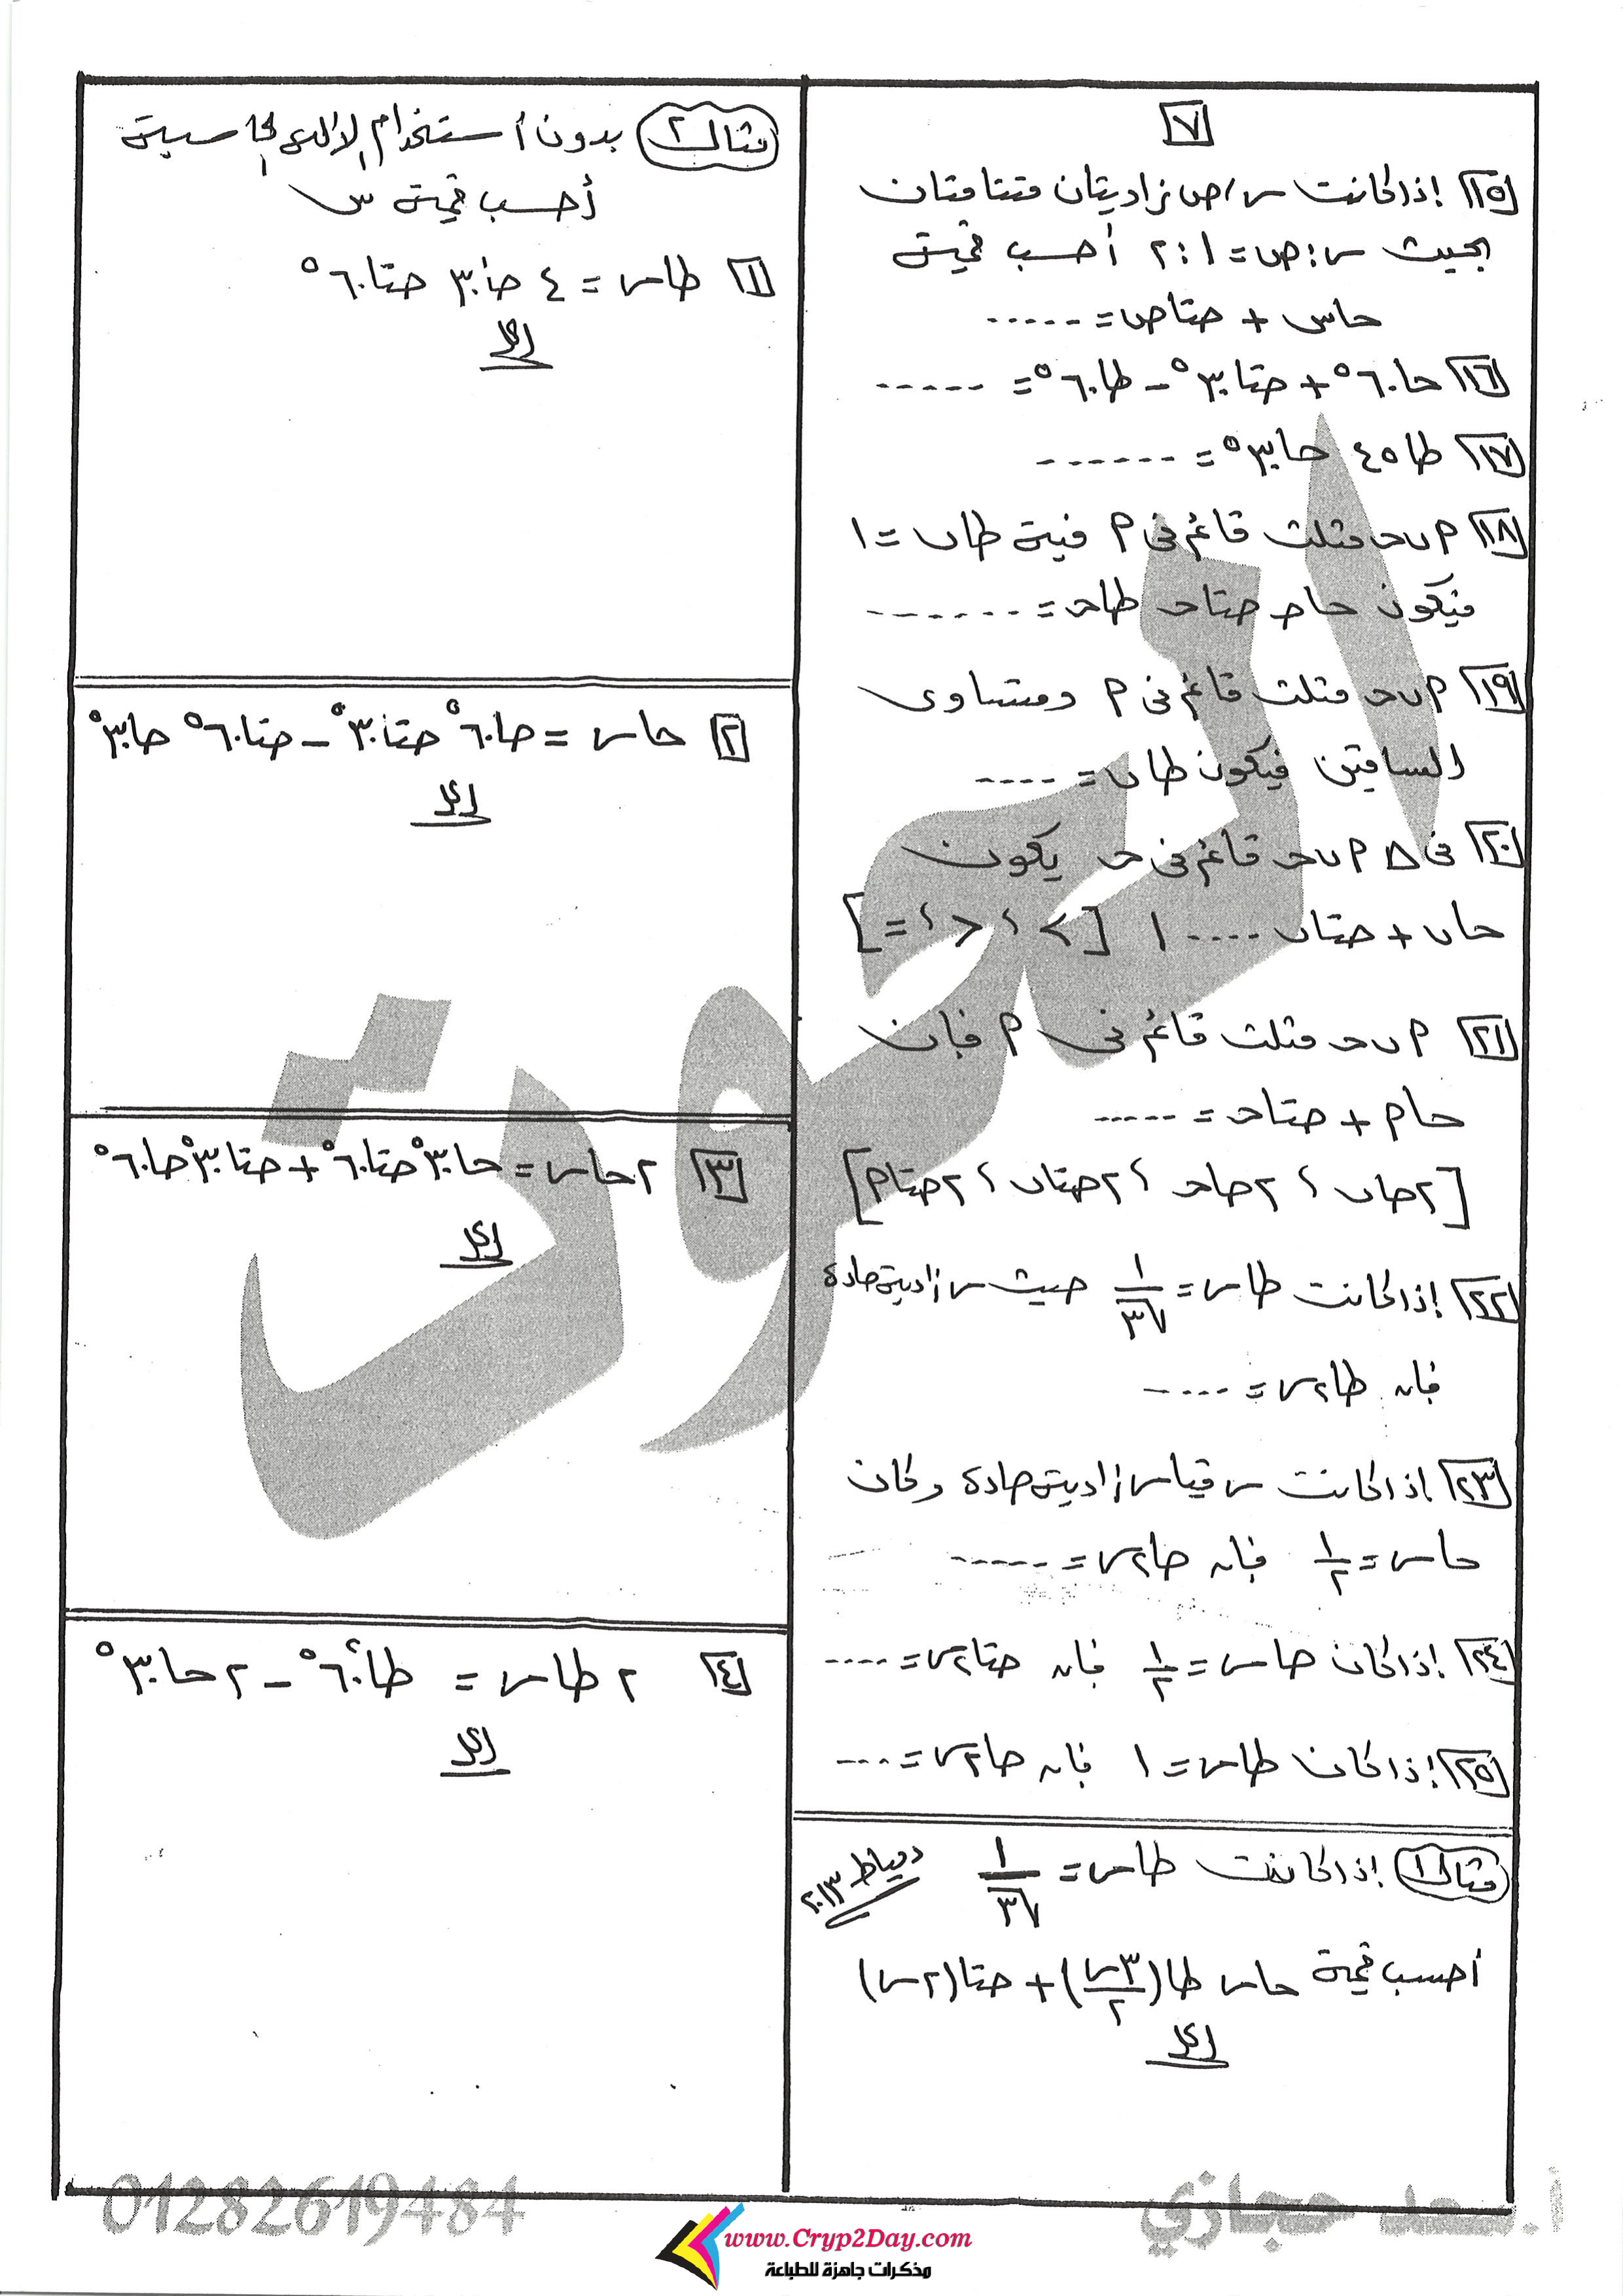 ٧
١٥ إذا كانت س ، ص زاويتان متتامتان
بحيث س : ص = ١ : ٢ أحسب قيمة
حاس + حتاص = -----
١٦ حا٦٠° + حتا٣٠° - طا٦٠° = -----
١٧ طا٤٥ حا٣٠° = ------
١٨ م ب ح مثلث قائم فى م فيه طاب = ١
فيكون حاح حتاح طاح = -------
١٩ م ب ح مثلث قائم فى م ومتساوى
الساقين فيكون طاب = ----
٢٠ فى △ م ب ح قائم فى ح يكون
حاب + حتاب ---- ١ [> ، < ، =]
٢١ م ب ح مثلث قائم فى م فإن
حام + حتاح = -----
[٢حاب ، ٢حاح ، ٢حتاب ، ٢حتام]
٢٢ إذا كانت طاس = ١/√٣ حيث س زاوية حادة
فإن طا٢س = ----
٢٣ إذا كانت س قياس زاوية حادة وكان
حاس = ١/٢ فإن حا٢س = -----
٢٤ إذا كان حاس = ١/٢ فإن حتا٢س = ----
٢٥ إذا كان طاس = ١ فإن حا٢س = ----
مثال ١ إذا كانت طاس = ١/√٣ دمياط ٢٠١٣
أحسب قيمة حاس طا(٣س/٢) + حتا(٢س)
الحل
مثال ٢ بدون أستخدام الآلة الحاسبة
أحسب قيمة س
١ طاس = ٤ حا٣٠ حتا٦٠°
الحل
٢ حاس = حا٦٠° حتا٣٠° - حتا٦٠° حا٣٠°
الحل
٣ ٢حاس = حا٣٠° حتا٦٠° + حتا٣٠° حا٦٠°
الحل
٤ ٢ طاس = طا²٦٠° - ٢ حا٣٠°
الحل
01282619484
أ.سعد حجازي
www.Cryp2Day.com
مذكرات جاهزة للطباعة